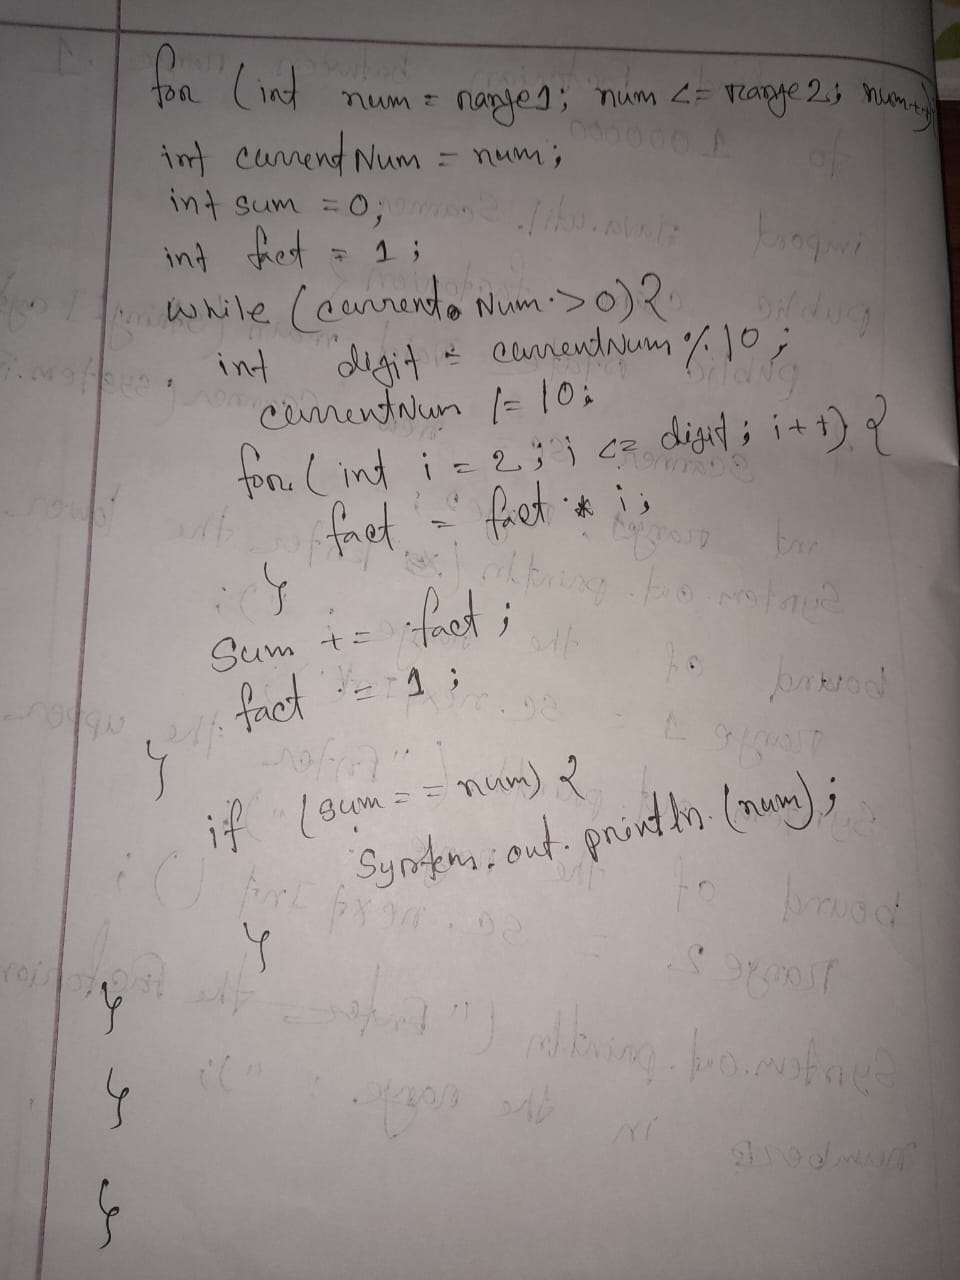 for (int num = range1; num <= range2; num++)
int currentNum = num;
int sum = 0;
int fact = 1;
while (currentNum > 0) {
int digit = currentNum % 10;
currentNum /= 10;
for (int i = 2; i <= digit; i++) {
fact = fact * i;
}
sum += fact;
fact = 1;
}
if (sum == num) {
System.out.println(num);
}
}
}
}